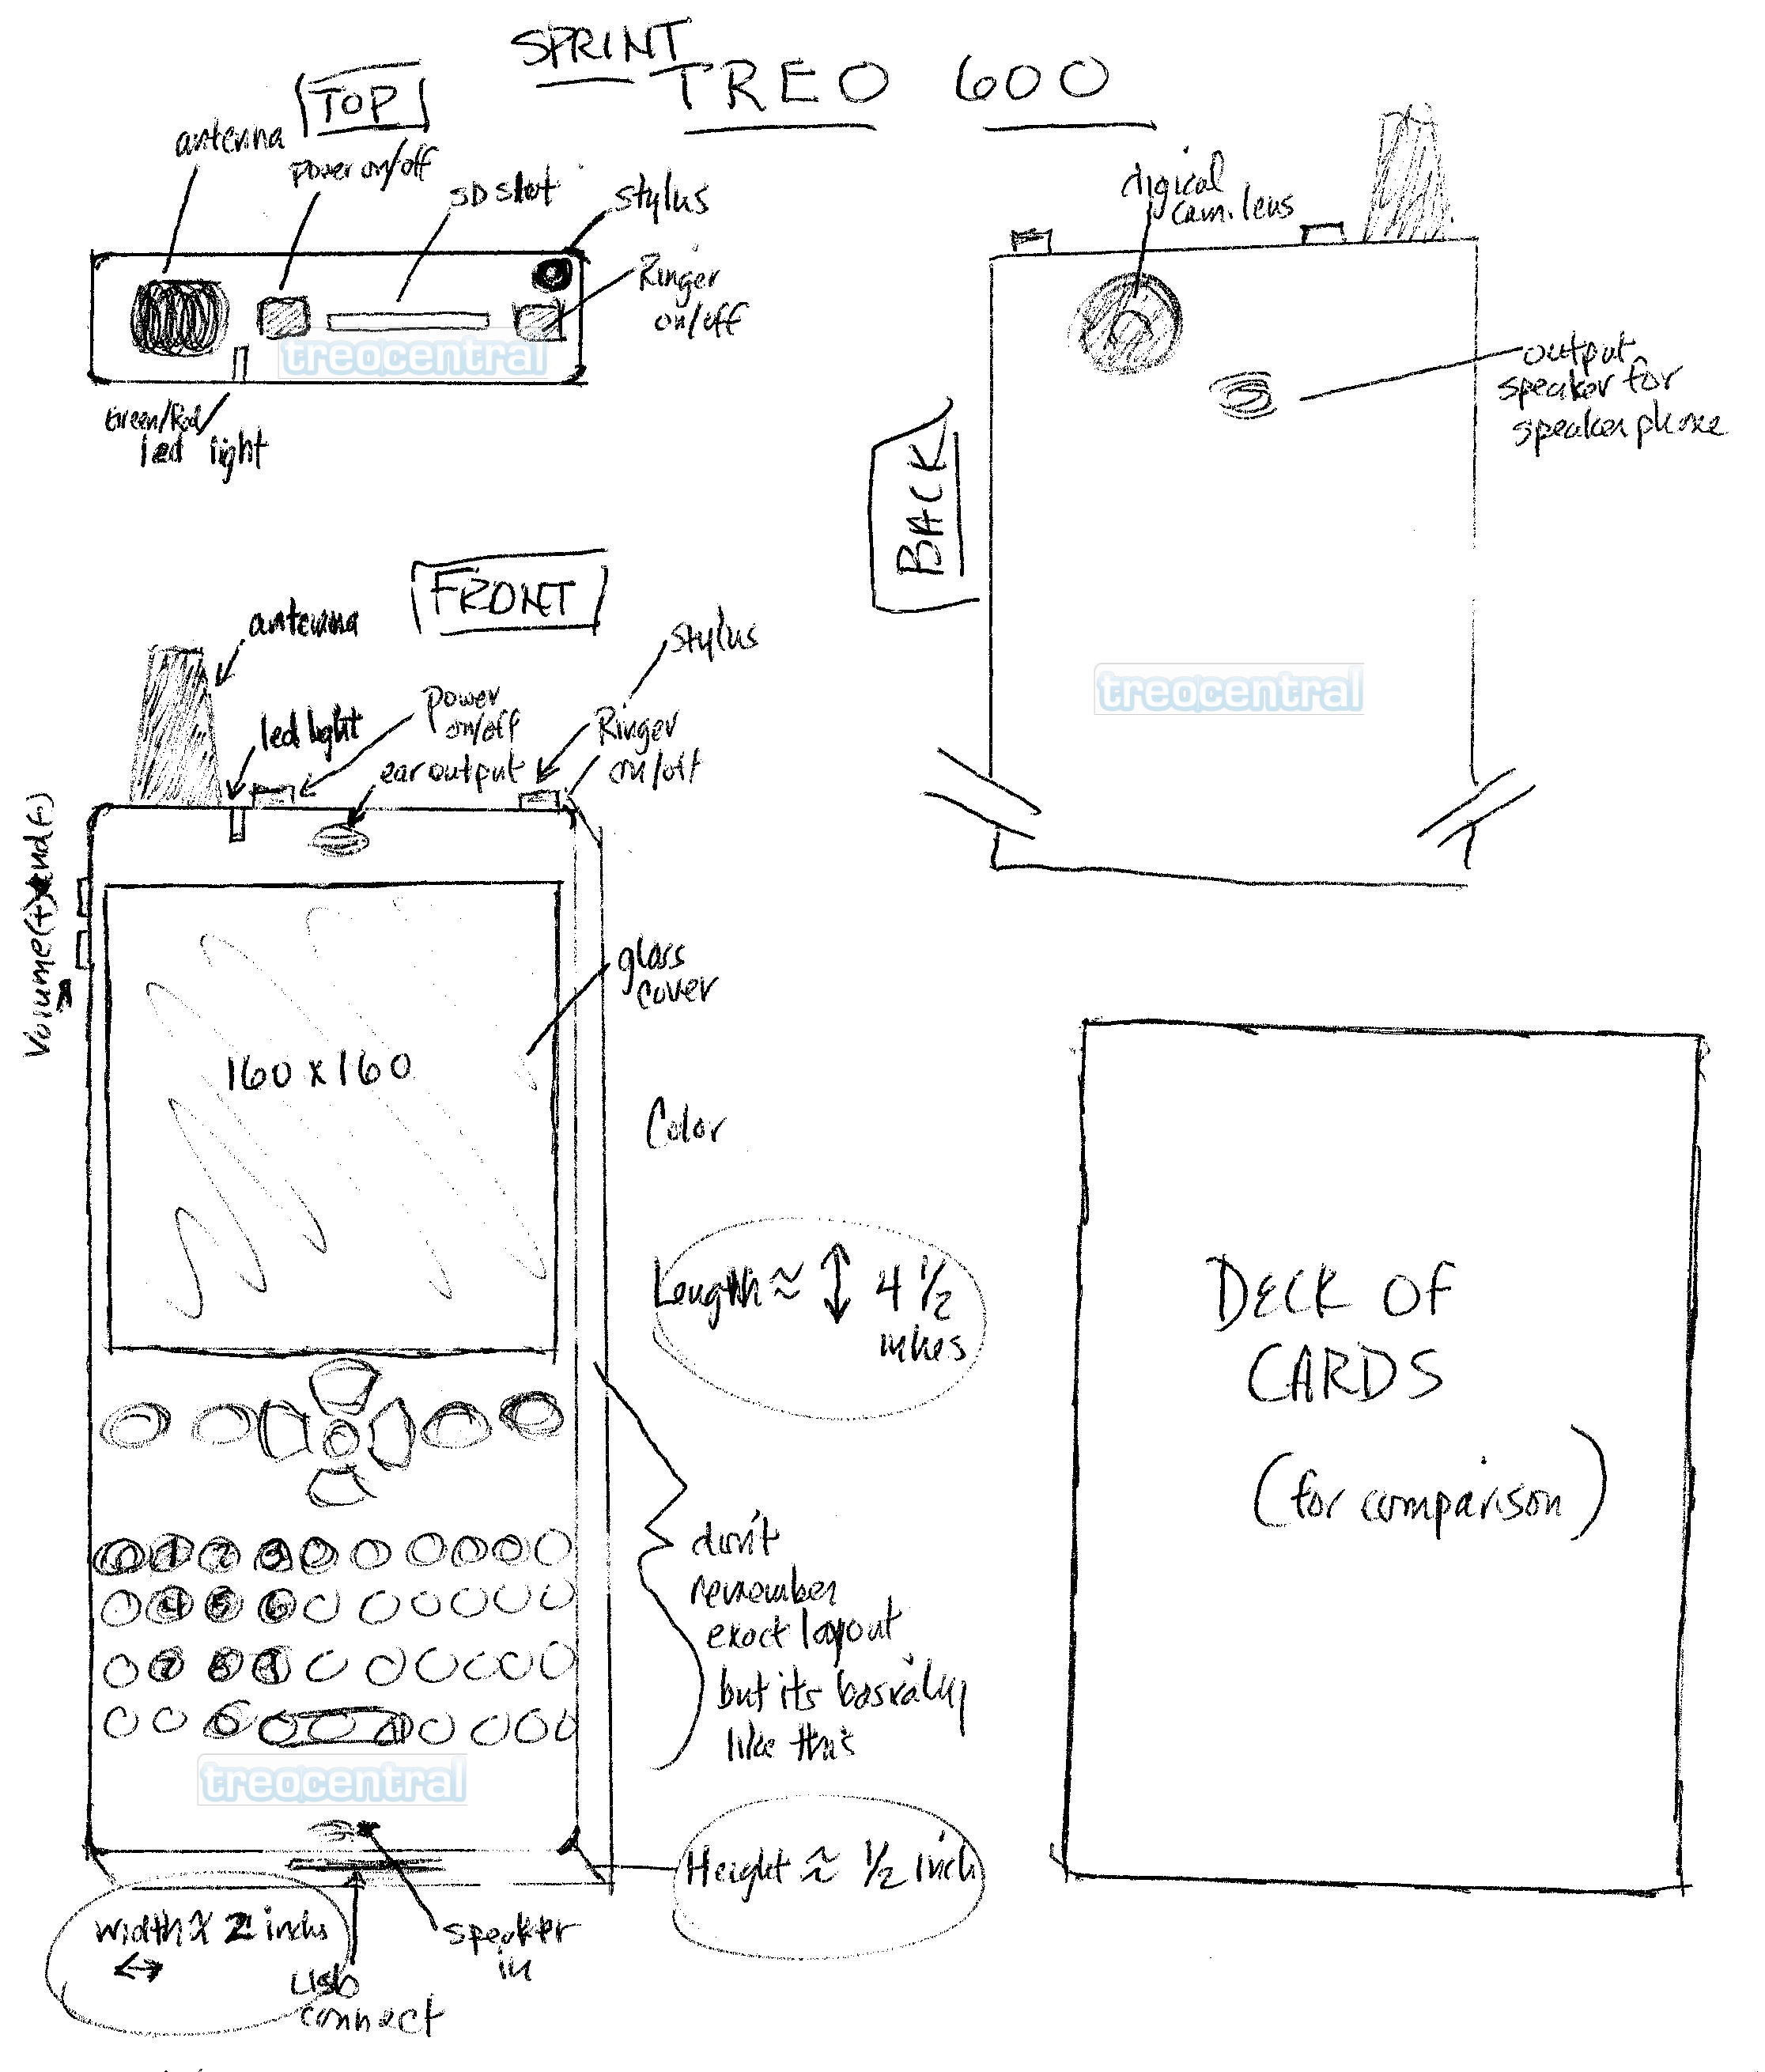 SPRINT
TREO 600
TOP
antenna
power on/off
SD slot
stylus
Ringer
on/off
treocentral
Green/Red/
led light
digical
cam. lens
output
speaker for
speaker phone
BACK
treocentral
FRONT
antenna
led light
power
on/off
ear output
stylus
Ringer
on/off
Volume (+) and (-)
glass
cover
160 x 160
Color
Length ≈ ↕ 4 1/2
inhes
don't
remember
exact layout
but its basically
like this
0 1 2 3
4 5 6
7 8 9
treocentral
Height ≈ 1/2 inch
width ≈ 2 inchs
↔
usb
connect
speaker
in
DECK OF
CARDS
(for comparison)